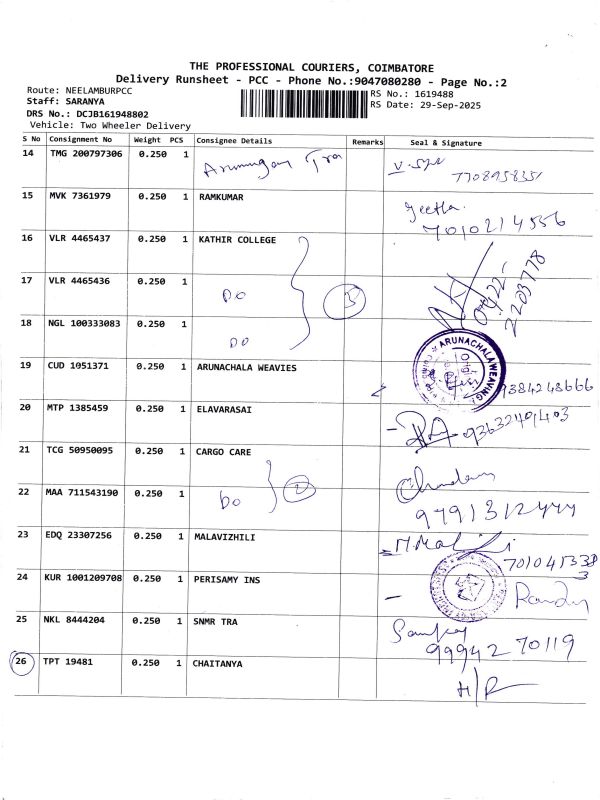 THE PROFESSIONAL COURIERS, COIMBATORE
Delivery Runsheet - PCC - Phone No.:9047080280 - Page No.:2
Route: NEELAMBURPCC
RS No.: 1619488
Staff: SARANYA
RS Date: 29-Sep-2025
DRS No.: DCJB161948802
Vehicle: Two Wheeler Delivery
S No Consignment No Weight PCS Consignee Details Remarks Seal & Signature
14 TMG 200797306 0.250 1 Arumugam Tra
7708958351
15 MVK 7361979 0.250 1 RAMKUMAR Geetha.
7010214556
16 VLR 4465437 0.250 1 KATHIR COLLEGE
0422-
2203778
17 VLR 4465436 0.250 1 DO 3
18 NGL 100333083 0.250 1 DO
ARUNACHALA WEAVING
19 CUD 1051371 0.250 1 ARUNACHALA WEAVIES 9384248666
20 MTP 1385459 0.250 1 ELAVARASAI 93632401403
21 TCG 50950095 0.250 1 CARGO CARE
22 MAA 711543190 0.250 1 DO 2
9791312444
23 EDQ 23307256 0.250 1 MALAVIZHILI
24 KUR 1001209708 0.250 1 PERISAMY INS
25 NKL 8444204 0.250 1 SNMR TRA
99942 70119
26 TPT 19481 0.250 1 CHAITANYA H/R